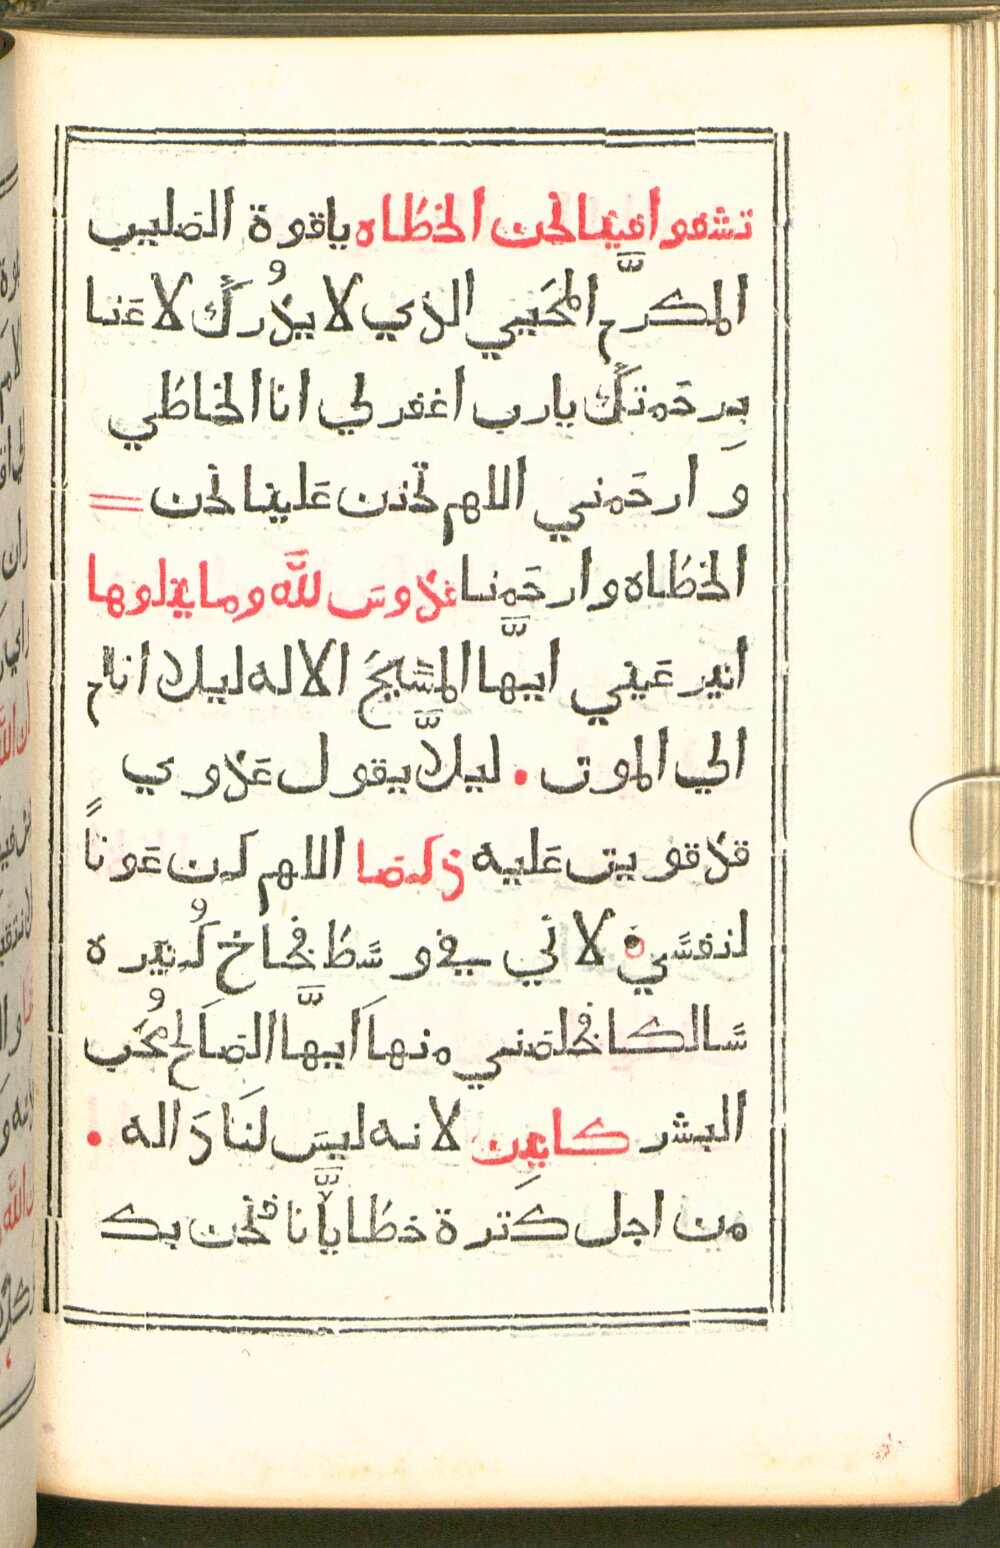 تشفعوا فينا نحن الخطاه ياقوة الصليب
المكرَّم المحَيي الذي لا يُدرَك لا عَنا
بِرحَمتكَ يارب اغفر لي انا الخاطي
وارحَمني اللهم تحنن عَلينا نحن
الخطاه وارحَمنا قدوسَ للَّه وما يتلوها
انير عَيني ايَّها المسَّيحَ الاله ليلا انام
الي الموت • ليلاَّ يقول عَدوي
قد قويت عَليه ذكصا اللهم كن عَوناً
لنفسَي • لاني في وسَط فخاخ كُثيره
سَالكا فخلصَني منها اَيهَّا الصَالح مُحَب
البشر كانين لانه ليسَ لنَا دَاله •
من اجل كِترة خطايَّانا فنحن بك